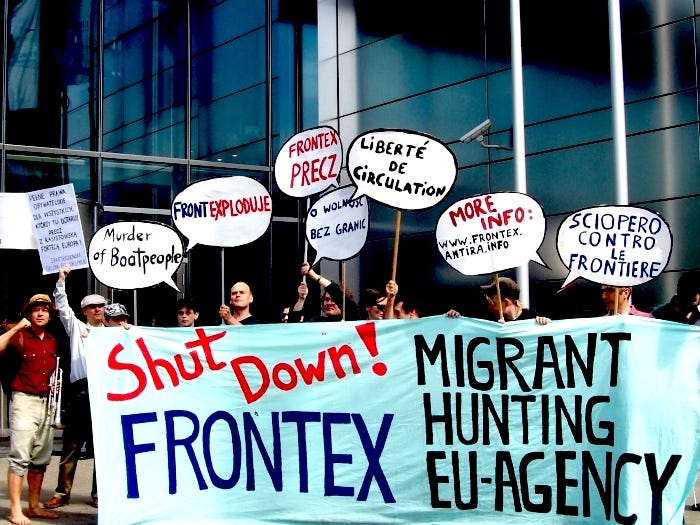 PEŁNE PRAWA
OBYWATELSKIE
DLA WSZYSTKICH
KTÓRZY TU DOTARLI!
PRECZ
Z RASISTOWSKĄ
FORTECĄ EUROPĄ!
Murder
of Boatpeople
FRONTEXPLODUJE
FRONTEX
PRECZ
O WOLNOŚĆ
BEZ GRANIC
LiBERTÉ
DE
CiRCULATION
MORE
INFO:
WWW.FRONTEX.
ANTIRA.INFO
SCIOPERO
CONTRO
LE
FRONTIERE
Shut
Down!
FRONTEX
MIGRANT
HUNTING
EU-AGENCY